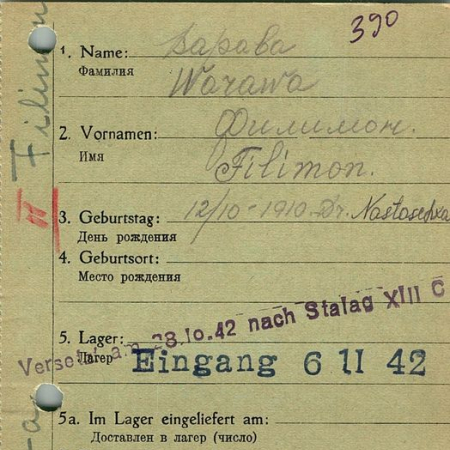 390
Варава
1. Name:
Фамилия
Warawa
Филимон.
2. Vornamen:
Имя
Filimon.
3. Geburtstag: 12/10-1910. Dr. Nastasefka
День рождения
4. Geburtsort:
Место рождения
Versetzt am 28.10.42 nach Stalag XIII C
5. Lager:
Лагер
Eingang 6 11 42
5a. Im Lager eingeliefert am:
Доставлен в лагер (число)
Filimon